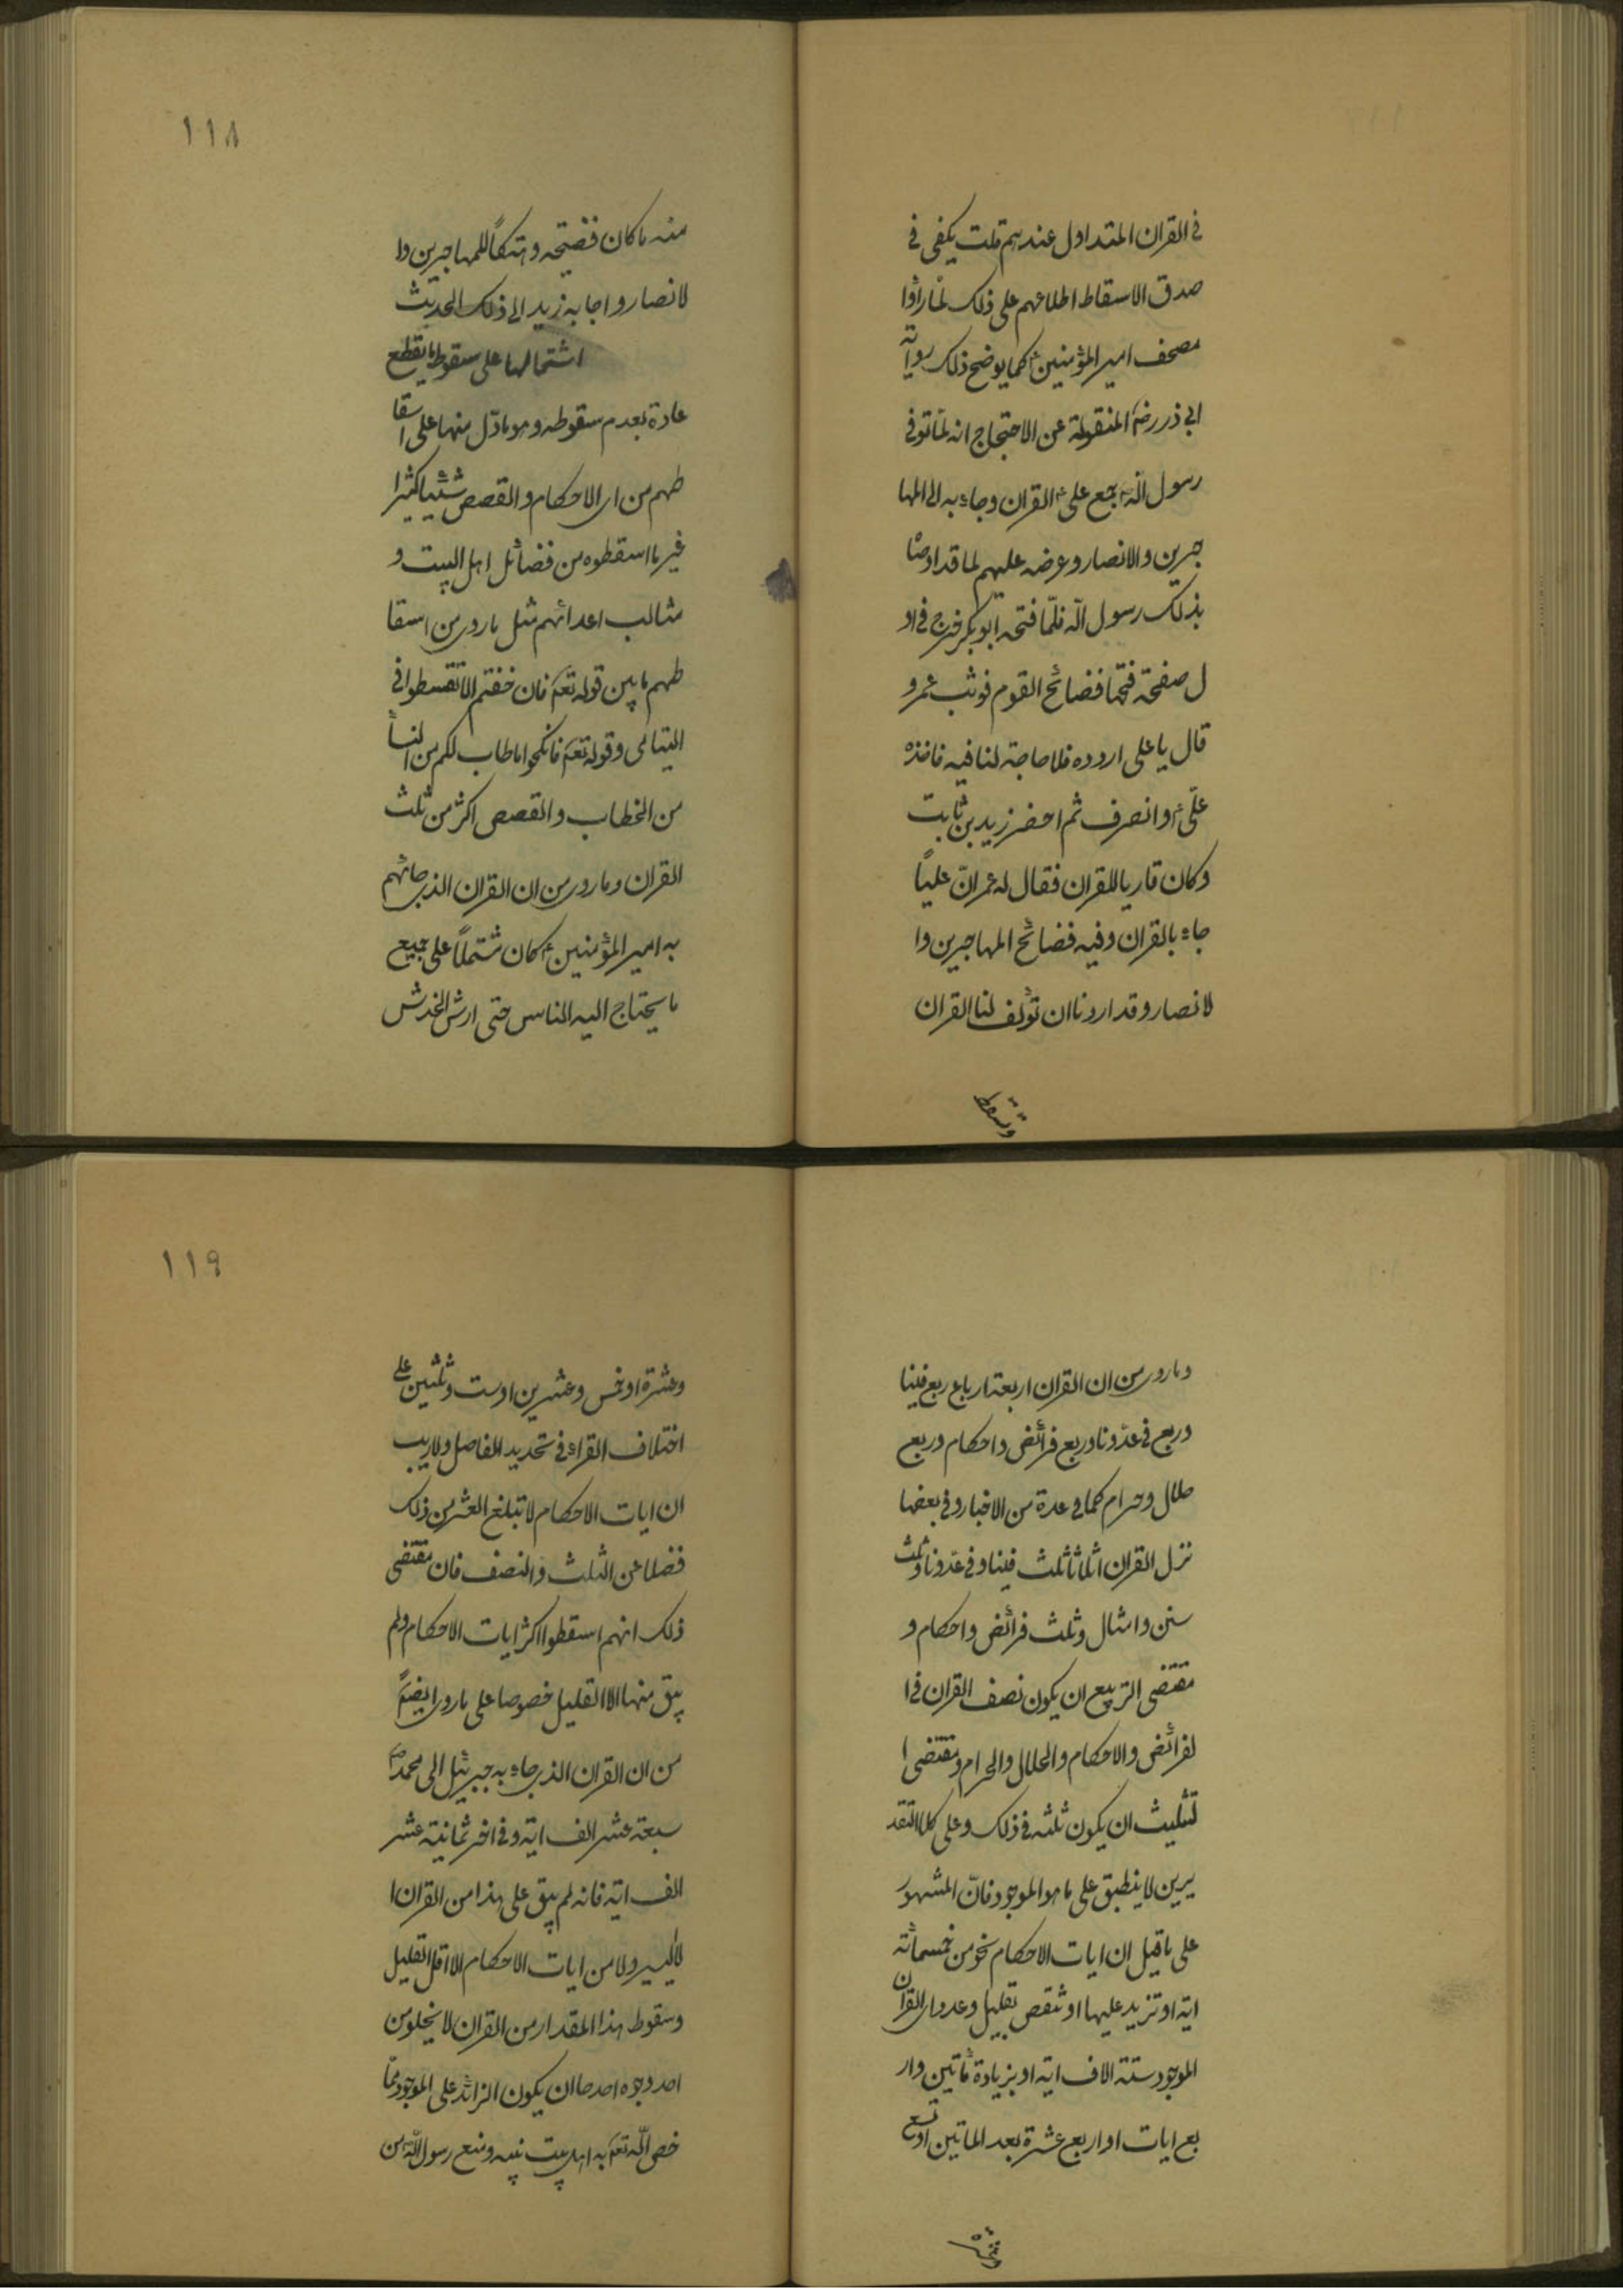 في القران المتداول عندهم قلت يكفى في
صدق الاسقاط اطلاعهم على ذلك لما راوا
مصحف امير المؤمنين ع كما يوضح ذلك رواية
ابي ذر رض المنقولة عن الاحتجاج انه لما توفى
رسول الله ص جمع على ع القران وجاء به الى المها
جرين والانصار وعرضه عليهم لما قد اوصا
بذلك رسول الله فلما فتحه ابو بكر خرج في او
ل صفحة فتحها فضائح القوم فوثب عمر و
قال يا على اردده فلا حاجة لنا فيه فاخذه
علّى ع وانصرف ثم احضر زيد بن ثابت
وكان قاريا للقران فقال له عمر انّ علياً
جاء بالقران وفيه فضائح المهاجرين وا
لانصار وقد اردنا ان تؤلف لنا القران
وتسقط
١١٨
منه ما كان فضيحه وهتكاً للمهاجرين وا
لانصار واجابه زيد الى ذلك الحديث
اشتمالها على سقوط ما يقطع
عادة بعدم سقوطه وهو ما دّل منها على اسقا
طهم من اى الاحكام والقصص شيئا كثيرا
غير ما اسقطوه من فضائل اهل البيت و
مثالب اعدائهم مثل ما روى من اسقا
طهم ما بين قوله تعم فان خفتم الا تقسطوا في
اليتامى وقوله تعم فانكحوا ما طاب لكم من النساً
من الخطاب والقصص اكثر من ثلث
القران وما روى من ان القران الذى جائهم
به امير المؤمنين ع كان مشتملاً على جميع
ما يحتاج اليه الناس حتى ارش الخدش
وما روى من ان القران اربعة ارباع ربع فينا
وربع في عدّونا وربع فرائض واحكام وربع
حلال وحرام كما في عدة من الاخبار وفي بعضها
نزل القران اثلاثا ثلث فينا وفي عدّونا وثلث
سنن وامثال وثلث فرائض واحكام و
مقتضى التربيع ان يكون نصف القران في ا
لفرائض والاحكام والحلال والحرام ومقتضى ا
لتثليث ان يكون ثلثه في ذلك وعلى كلا التقد
يرين لا ينطبق على ما هو الموجود فانّ المشهور
على ما قيل ان ايات الاحكام نحو من خمسمائة
اية او تزيد عليها او تنقص بقليل وعدد اى القران
الموجود ستة الاف اية او بزيادة مأتين وار
بع ايات او اربع عشرة بعد الماتين او تسع
وعشرة
١١٩
وعشرة او خمس وعشرين او ست وثلثين على
اختلاف القراء في تحديد الفاصل ولا ريب
ان ايات الاحكام لا تبلغ العشر من ذلك
فضلا عن الثلث والنصف فان مقتضى
ذلك انهم اسقطوا اكثر ايات الاحكام ولم
يبق منها الا القليل خصوصا على ما روى ايضاً
من ان القران الذى جاء به جبرئيل الى محمد ص
سبعة عشر الف اية وفي اخر ثمانية عشر
الف اية فانه لم يبق على هذا من القران ا
لا اليسير ولا من ايات الاحكام الا اقل القليل
وسقوط هذا المقدار من القران لا يخلو من
احد وجوه احدها ان يكون الزائد على الموجود ممّا
خص الله تعم به اهل بيت نبيه ومنع رسول الله ص من